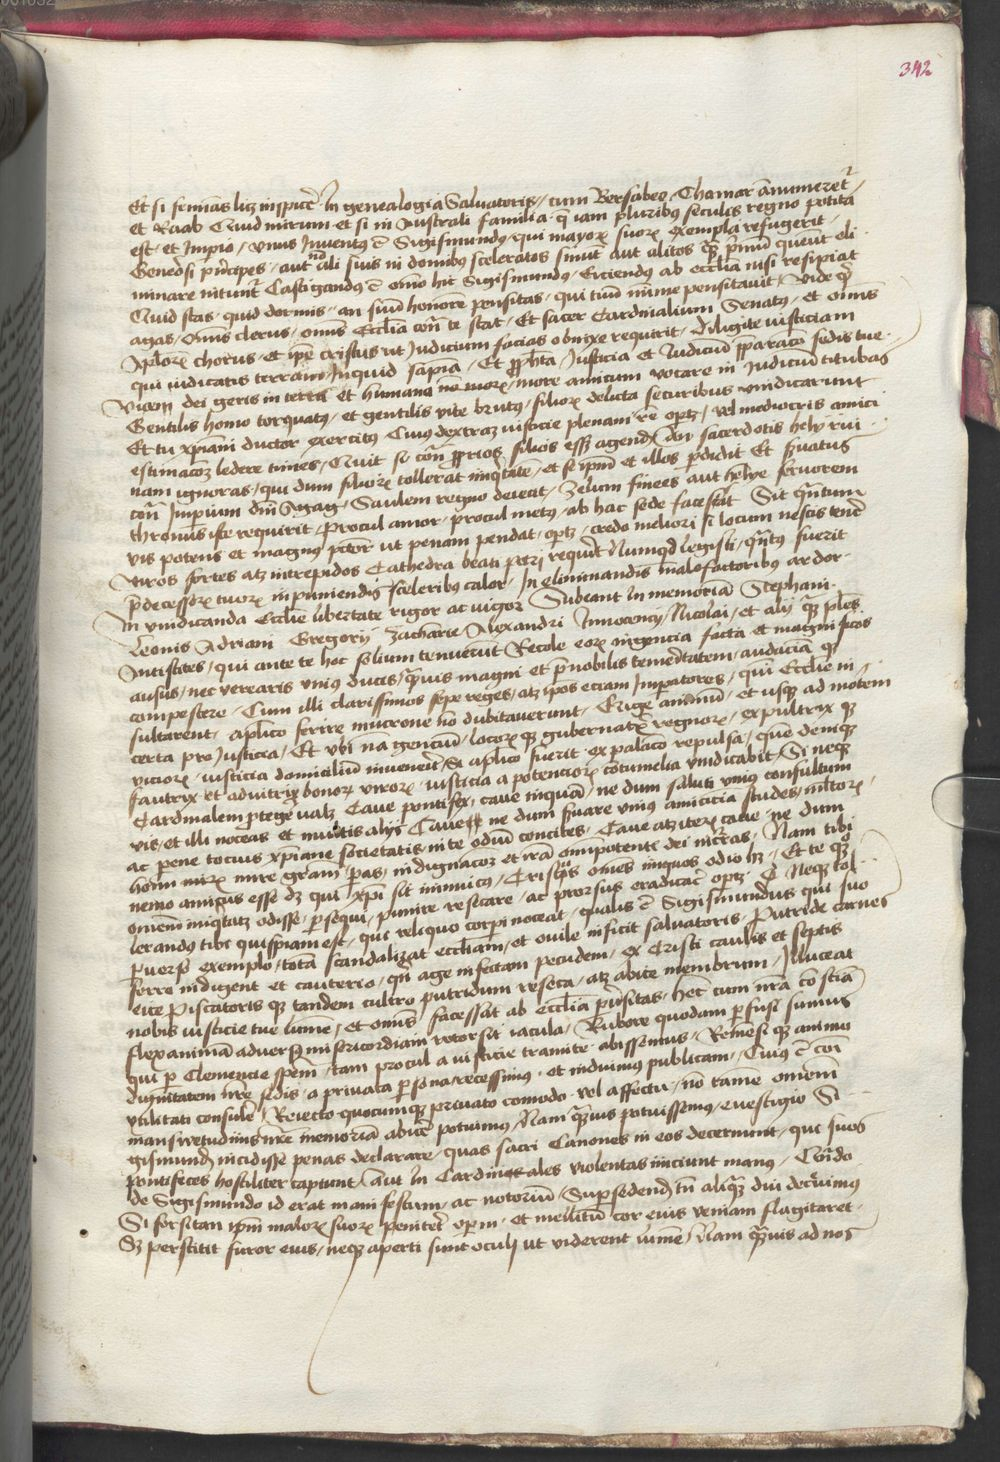 342
Et si feminas licz inspicere In genealogia Saluatoris, cum Bersabee, Thamar annumeretur,
et Raab Quid mirum et si in Australi familia que iam pluribus seculis regno potita
est, et Imperio, vnus Inuentus est Sigismundus, qui mayorum suorum exempla refugerit,
Generosi principes, aut nulli suis in domibus sceleratos sinunt aut alitos quam primum queunt eli
minare nituntur Castigandus est omnino hic Sigismundus, Eiciendus ab ecclesia nisi resipiat
Quid stas, quid dormis, an suum honore pensitas, qui tuum minime pensitauit, vide quid
agas, Omnis clerus, omnis Ecclesia contra te stat, Et sacer Cardinalium Senatus, et omnis
Apostolorum chorus, et ipse cristus ut Iudicium facias obnixe requirit, Diligite iusticiam
qui iudicatis terram, Inquid sapiencia, Et propheta, Iusticia et Iudicium preparacio sedis tue,
Vicem dei geris in terra et humano more, amicum vocare in Iudicium titubas
Gentilis homo torquatus, et gentilis vite brutus, filiorum delicta securibus vindicarunt
Et tu xpiani ductor exercitus Cuius dextram iusticie plenam esse oportet, vel mediocris amici
estimacionem ledere times, Quit si contra proprios filios esset agendum An sacerdotis hely rui
nam ignoras, qui dum filiorum tollerat iniquitatem, et seipsum et illos perdidit Et seruatus
contra Imperium domini Agag, Saulem regno deiecit, Zelum finees aut helye feruorem
thronus iste requirit, procul amor, procul metus, ab hac sede facessat Sit quantum
vis potens et magnus peccator ut penam pendat, oportet, credo meliori si locum nescis tenere
Viros fortes atque intrepidos Cathedra beati petri requirit Numquid legisti, quantus fuerit
predecessorum tuorum in puniendis sceleribus calor, In eliminandis malefactoribus ardor,
In vindicanda Ecclesie libertate rigor ac vigor Subeant In memoriam Stephani,
Leonis Adriani Gregorij Zacharie, Alexandri Innocencij, Nicolai, et alij quam plures
Antistites, qui ante te hoc solium tenuerunt Recole eorum ingencia facta et magnificos
ausus, nec verearis vnius ducis, quamuis magni et prenobilis temeritatem, audaciam que
compescere, Cum illi clarissimos sepe reges, atque ipsos eciam Imperatores, qui Ecclesie in
sultarent, aplico ferire mucrone non dubitauerunt, Erige animum, et usque ad mortem
certa pro Iusticia, Et vbi nam gencium, locorum que gubernatrix regnorum, expultrix que
viciorum, iusticia domicilium inueneret, si aplico fuerit ex palacio repulsa, quem denique
fautrix et adiutrix bonorum virorum, iusticia a potenciorum contumelia vindicabit, Si neque
Cardinalem protegere valet Caue pontifex, caue inquam, ne dum saluti vnius consultum
vis, et illi noceas et multis alijs Caue ne dum seruare vnius amiciciam studes, multorum,
ac pene tocius xpiane societatis, in te odium concites, Caue atque iterum caue, ne dum
hominum inire graciam paras, indignacionem et iram omnipotentis dei incurras, Nam tibi
nemo amicus esse debet qui xpi sit inimicus, Cristus omnes iniquos odio habet, Et te que
omnem iniquitatem odisse, persequi, punire resecare, ac prorsus eradicare oportet, Neque tol
lerandus tibi quispiam est, qui reliquo corpori noceat, qualis est Sigismundus qui suo
peruerso exemplo, totam scandalizat ecclesiam, et ouile inficit saluatoris, Putride carnes
ferro indigent et cauterro, quin age infectam pecudem, ex Cristi caulis et septis
eice Piscatoris que tandem cultro putridum reseca, atque abite membrum, Illuceat
nobis iusticie tue lumen, et omnis facessat ab ecclesia peruersitas, hec cum nostra conscia
flexanimam aduersus misericordiam retorsit iacula, Rubore quodam perfusi sumus
qui per Clemencie spem, tam procul a iusticie tramite abissemus, Reminiscique animo
dignitatem nostre sedis, a priuata persona recessimus, et induimus publicam, Cuius est communi
vtilitati consulere, Reiecto quocumque priuato comodo, vel affectu, non tamen omnem
mansuetudinis nostre memoriam abicere potuimus, Nam quamuis potuissemus, e vestigio Si
gismundum incidisse penas declarare, quas sacri Canones in eos decernunt, qui suos
pontifices hostiliter capiunt, aut In Cardinales violentas iniciunt manus, Quando
de Sigismundo id erat manifestum, ac notorium, Supersedendum tamen aliquam diu decreuimus
Si forsitan ipsum malorum suorum peniteret vnquam, et mellitum cor eius veniam flagitaret,
Sed perstitit furor eius, neque aperti sunt oculi ut viderent lumen, Nam quamuis ad nos